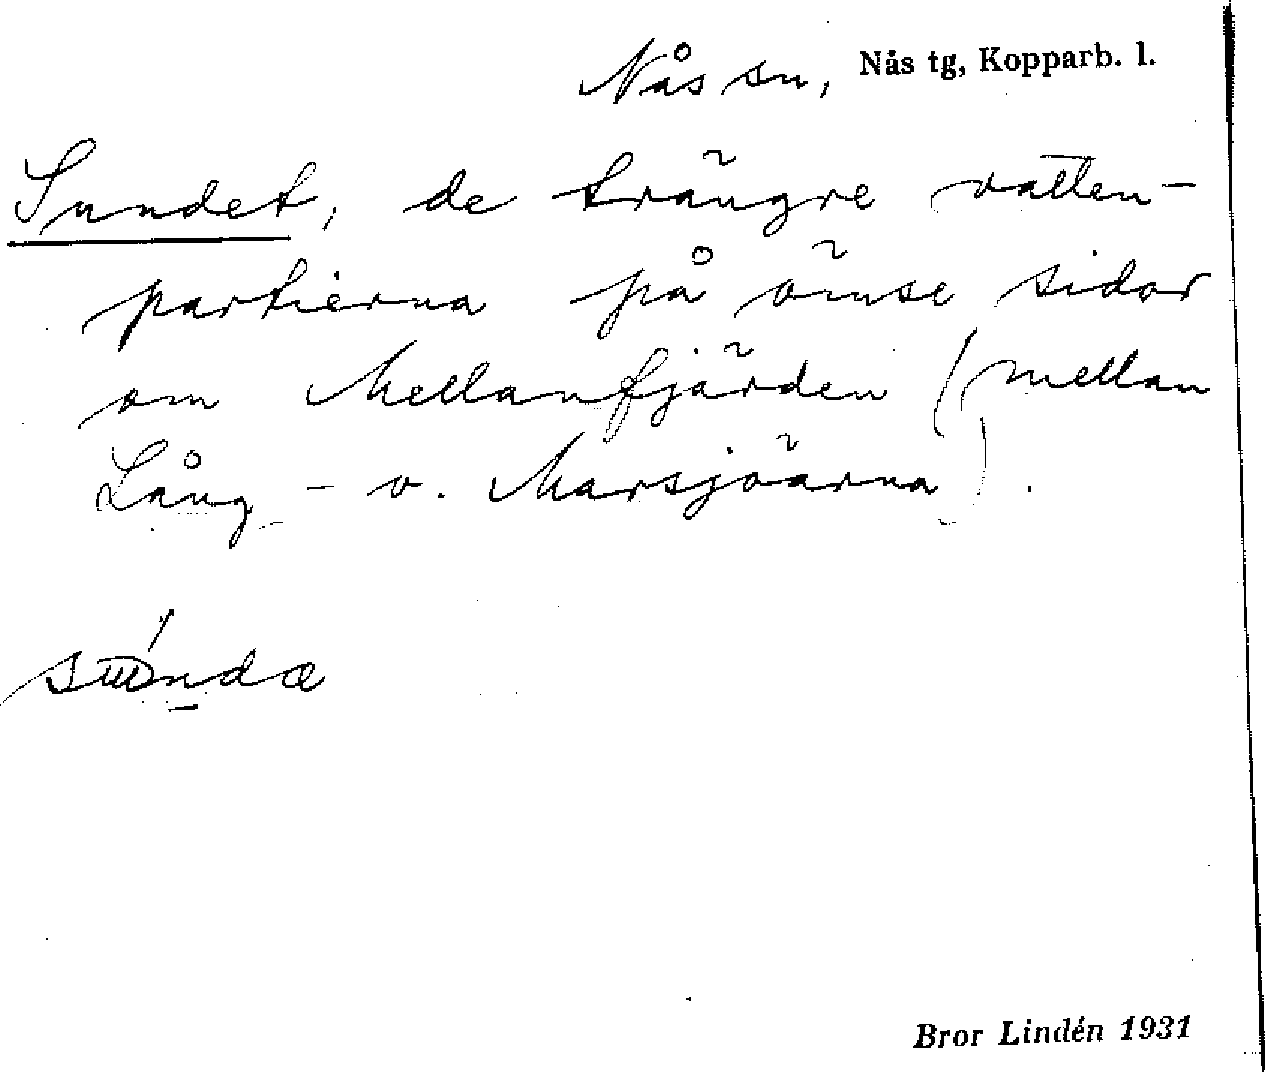 Nås sn, Nås tg, Kopparb. l.
Sundet, de trängre vatten-
partierna på ömse sidor
om Mellanfjärden (mellan
Lång- o. Marsjöarna).
Bror Lindén 1931